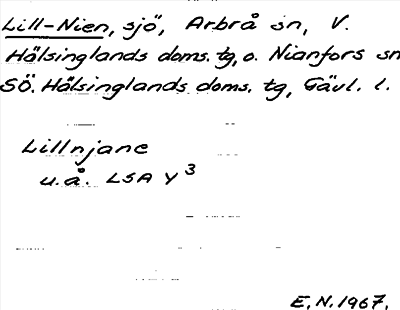 Lill-Nien, sjö, Arbrå sn, V.
Hälsinglands doms. tg, o. Nianfors sn
SÖ. Hälsinglands doms. tg, Gävl. l.
Lillnjane
u.å. LSA Y³
E.N.1967.